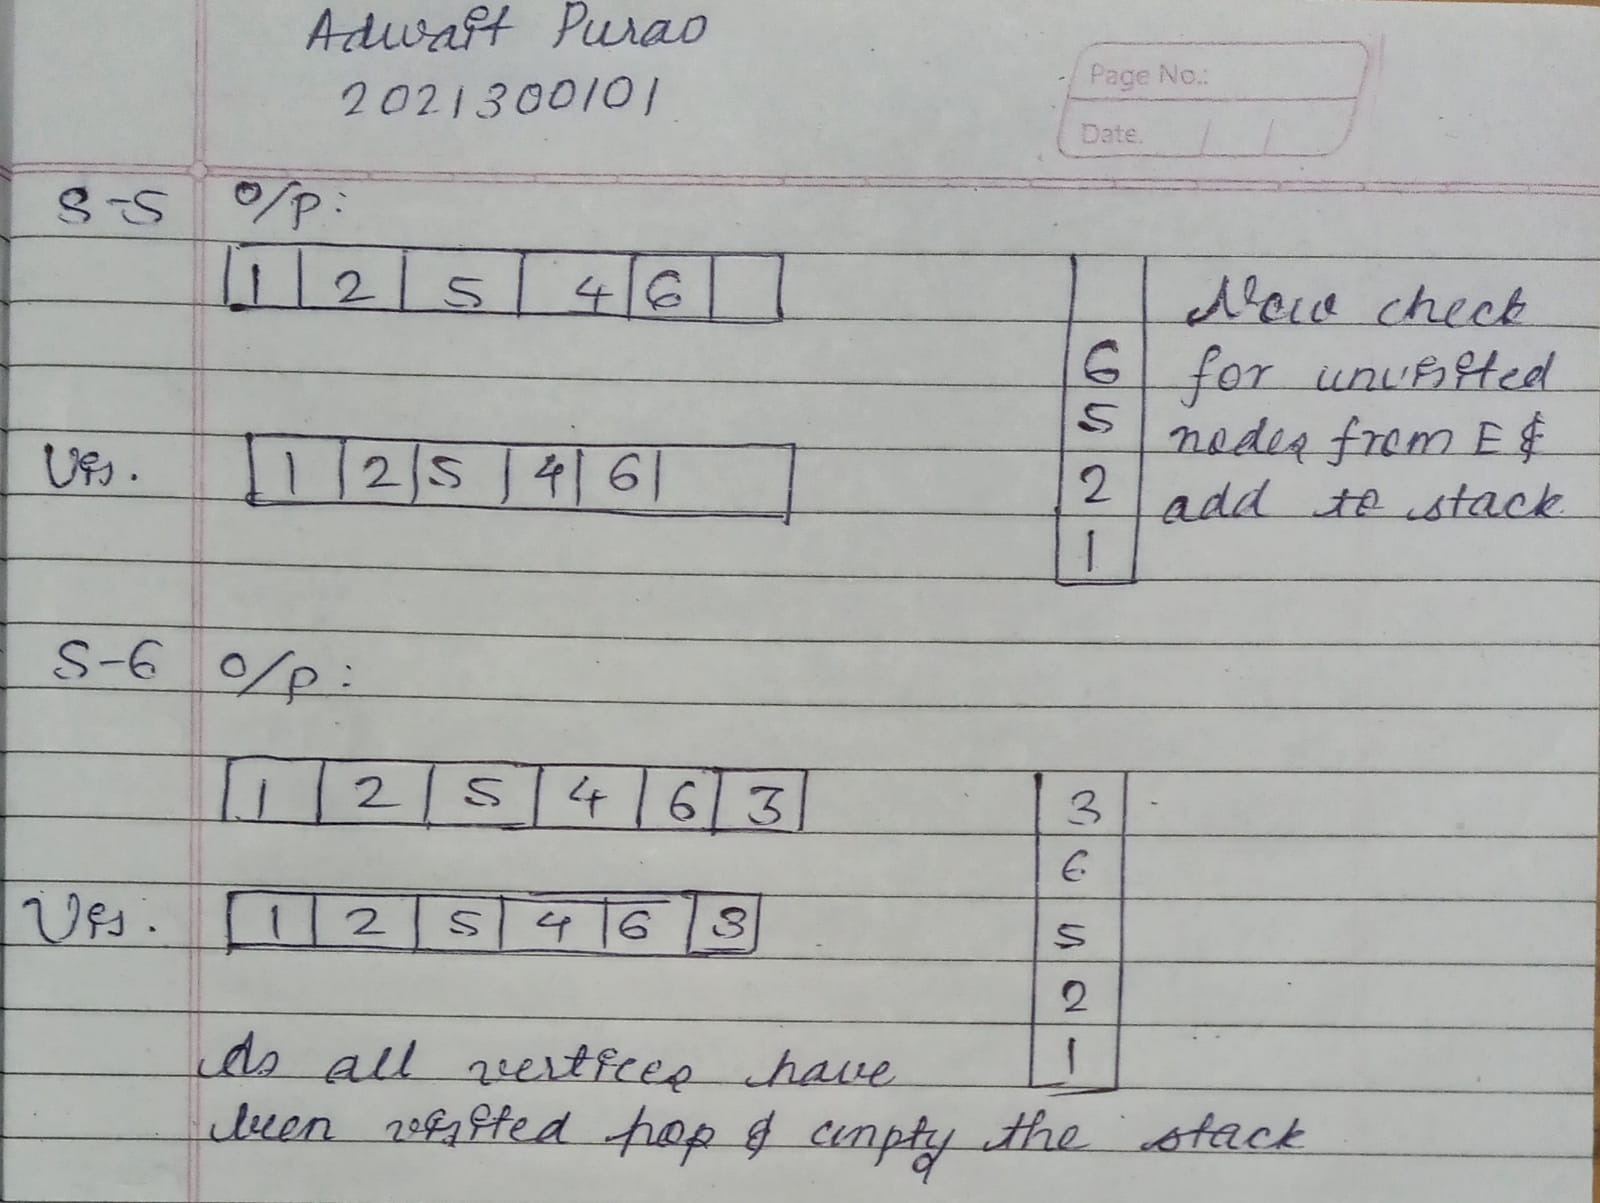 Adwait Purao
2021300101
Page No.:
Date. / /
S-5 O/p:
1 2 5 4 6
Now check
for unvisited
nodes from E &
add to stack
6
5
2
1
Vis. 1 2 5 4 6
S-6 O/p:
1 2 5 4 6 3
3
6
5
2
1
Vis. 1 2 5 4 6 3
As all vertices have
been visited pop & empty the stack